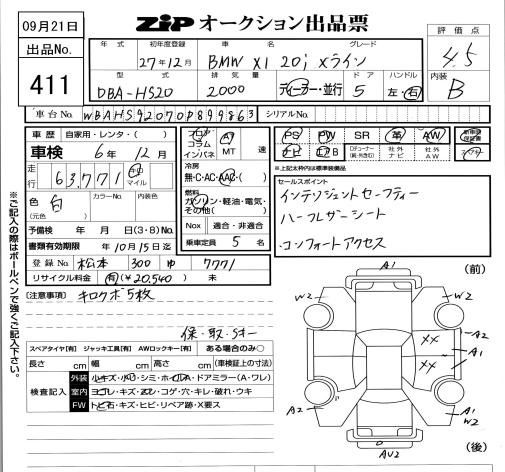 09月21日
ZIP オークション出品票
出品No. 411
年式 初年度登録 車名 グレード
27年12月 BMW X1 20i xライン
型式 排気量 ドア ハンドル
DBA-HS20 2000 ディーラー・並行 5 左・右
評価点 4.5
内装 B
車台No. WBAHS92070P899863 シリアルNo.
車歴 自家用・レンタ・( )
車検 6年 12月
走行 63,771 km マイル
色 白 (元色) カラーNo. 内装色
予備検 年 月 日(3・8)No.
書類有効期限 年10月15日迄
登録No. 松本 300 ゆ 7771
リサイクル料金 有(¥20,540) 未
フロア コラム インパネ AT MT 速
冷房 無・C・AC・AAC・( )
燃料 ガソリン・軽油・電気・その他( )
Nox 適合・非適合
乗車定員 5 名
PS PW SR 革 AW 新車時保証書
ナビ エアB Dチューナー(純・外含む) 社外ナビ 社外AW
※上記太枠内は標準装備品
セールスポイント
インテリジェントセーフティー
ハーフレザーシート
コンフォートアクセス
[注意事項] キロクボ5枚
保・取・Sオー
スペアタイヤ[有] ジャッキ工具[有] AWロックキー[有] ある場合のみ○
長さ cm 幅 cm 高さ cm (車検証上の寸法)
検査記入
外装 小キズ・小凹・シミ・ホイルA・ドアミラー(A・ワレ)
室内 ヨゴレ・キズ・スレ・コゲ・穴・キレ・破れ・ウキ
FW トビ石・キズ・ヒビ・リペア跡・X要ス
※ご記入の際はボールペンで強くご記入下さい。
(前)
A1
W2 W2
XX A2
XX A1
A2 A1 W2
P
D
AU2
(後)